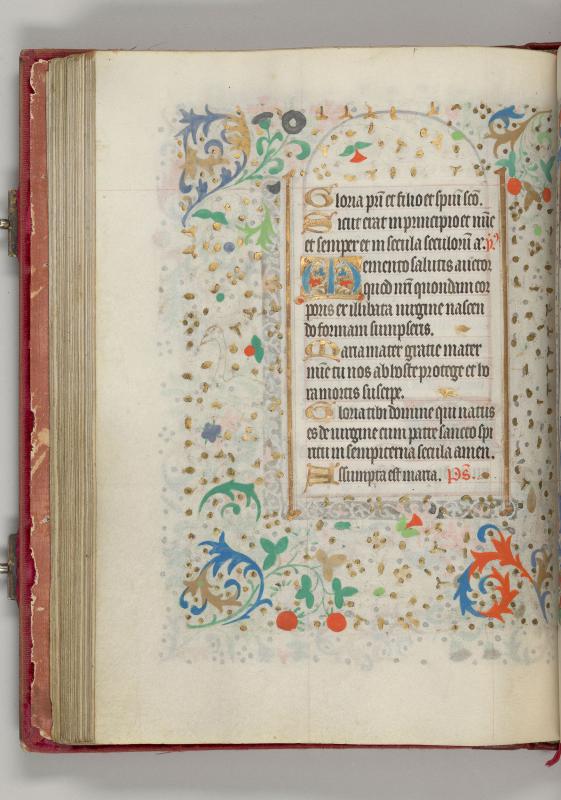 Gloria pri et filio et spui sco.
Sicut erat in principio et nuc
et semper et in secula seculoru a. p.
Memento salutis auctor
quod nri quondam cor
poris ex illibata virgine nascen
do formam sumpseris.
Maria mater gratie mater
mie tu nos ab hoste protege et ho
ra mortis suscipe.
Gloria tibi domine qui natus
es de virgine cum patre sancto spi
ritu in sempiterna secula amen.
Assumpta est maria. ps.